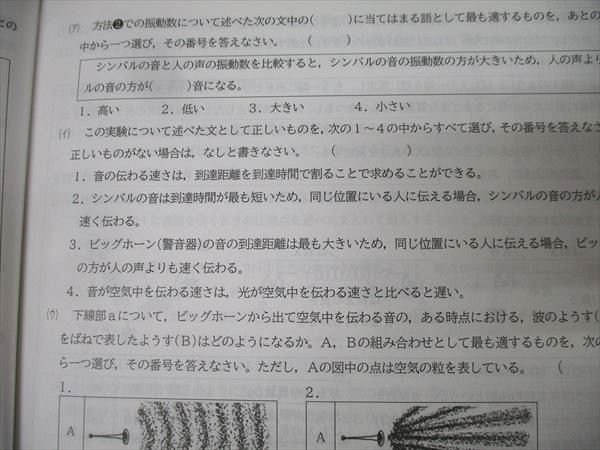 (ア) 方法❷での振動数について述べた次の文中の(　　)に当てはまる語として最も適するものを，あとの
中から一つ選び，その番号を答えなさい。(　　)
シンバルの音と人の声の振動数を比較すると，シンバルの音の振動数の方が大きいため，人の声より
ルの音の方が(　　)音になる。
1．高い　2．低い　3．大きい　4．小さい
(イ) この実験について述べた文として正しいものを，次の1～4の中からすべて選び，その番号を答えなさ
正しいものがない場合は，なしと書きなさい。(　　)
1．音の伝わる速さは，到達距離を到達時間で割ることで求めることができる。
2．シンバルの音は到達時間が最も短いため，同じ位置にいる人に伝える場合，シンバルの音の方が人
速く伝わる。
3．ビッグホーン(警音器)の音の到達距離は最も大きいため，同じ位置にいる人に伝える場合，ビッ
の方が人の声よりも速く伝わる。
4．音が空気中を伝わる速さは，光が空気中を伝わる速さと比べると遅い。
(ウ) 下線部aについて，ビッグホーンから出て空気中を伝わる音の，ある時点における，波のようす(
をばねで表したようす(B)はどのようになるか。A，Bの組み合わせとして最も適するものを，次の
ら一つ選び，その番号を答えなさい。ただし，Aの図中の点は空気の粒を表している。(
1．　2．
A　A